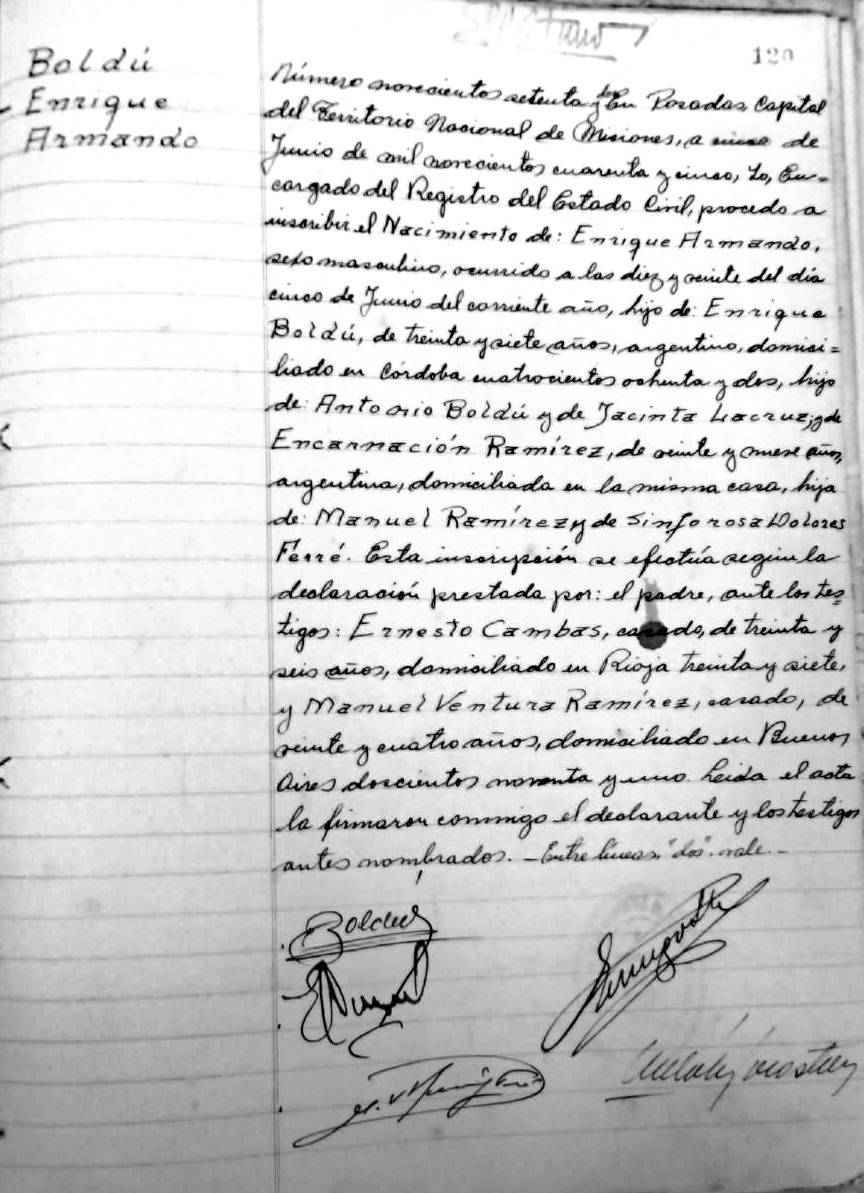 120
Boldú
Enrique
Armando
Número novecientos setenta y dos En Posadas, Capital
del Territorio Nacional de Misiones, a cinco de
Junio de mil novecientos cuarenta y cinco, Yo, En=
cargado del Registro del Estado Civil, procedo a
inscribir el Nacimiento de: Enrique Armando,
sexo masculino, ocurrido a las diez y veinte del día
cinco de Junio del corriente año, hijo de: Enrique
Boldú, de treinta y siete años, argentino, domici=
liado en Córdoba cuatrocientos ochenta y dos, hijo
de: Antonio Boldú y de Jacinta Lacruz; y de
Encarnación Ramírez, de veinte y nueve años,
argentina, domiciliada en la misma casa, hija
de: Manuel Ramírez y de Sinforosa Dolores
Ferré. Esta inscripción se efectúa según la
declaración prestada por: el padre, ante los tes=
tigos: Ernesto Cambas, casado, de treinta y
seis años, domiciliado en Rioja treinta y siete,
y Manuel Ventura Ramírez, casado, de
veinte y cuatro años, domiciliado en Buenos
Aires doscientos noventa y uno. Leida el acta
la firmaron conmigo el declarante y los testigos
antes nombrados. - Entre líneas: "dos". vale. -
Boldú